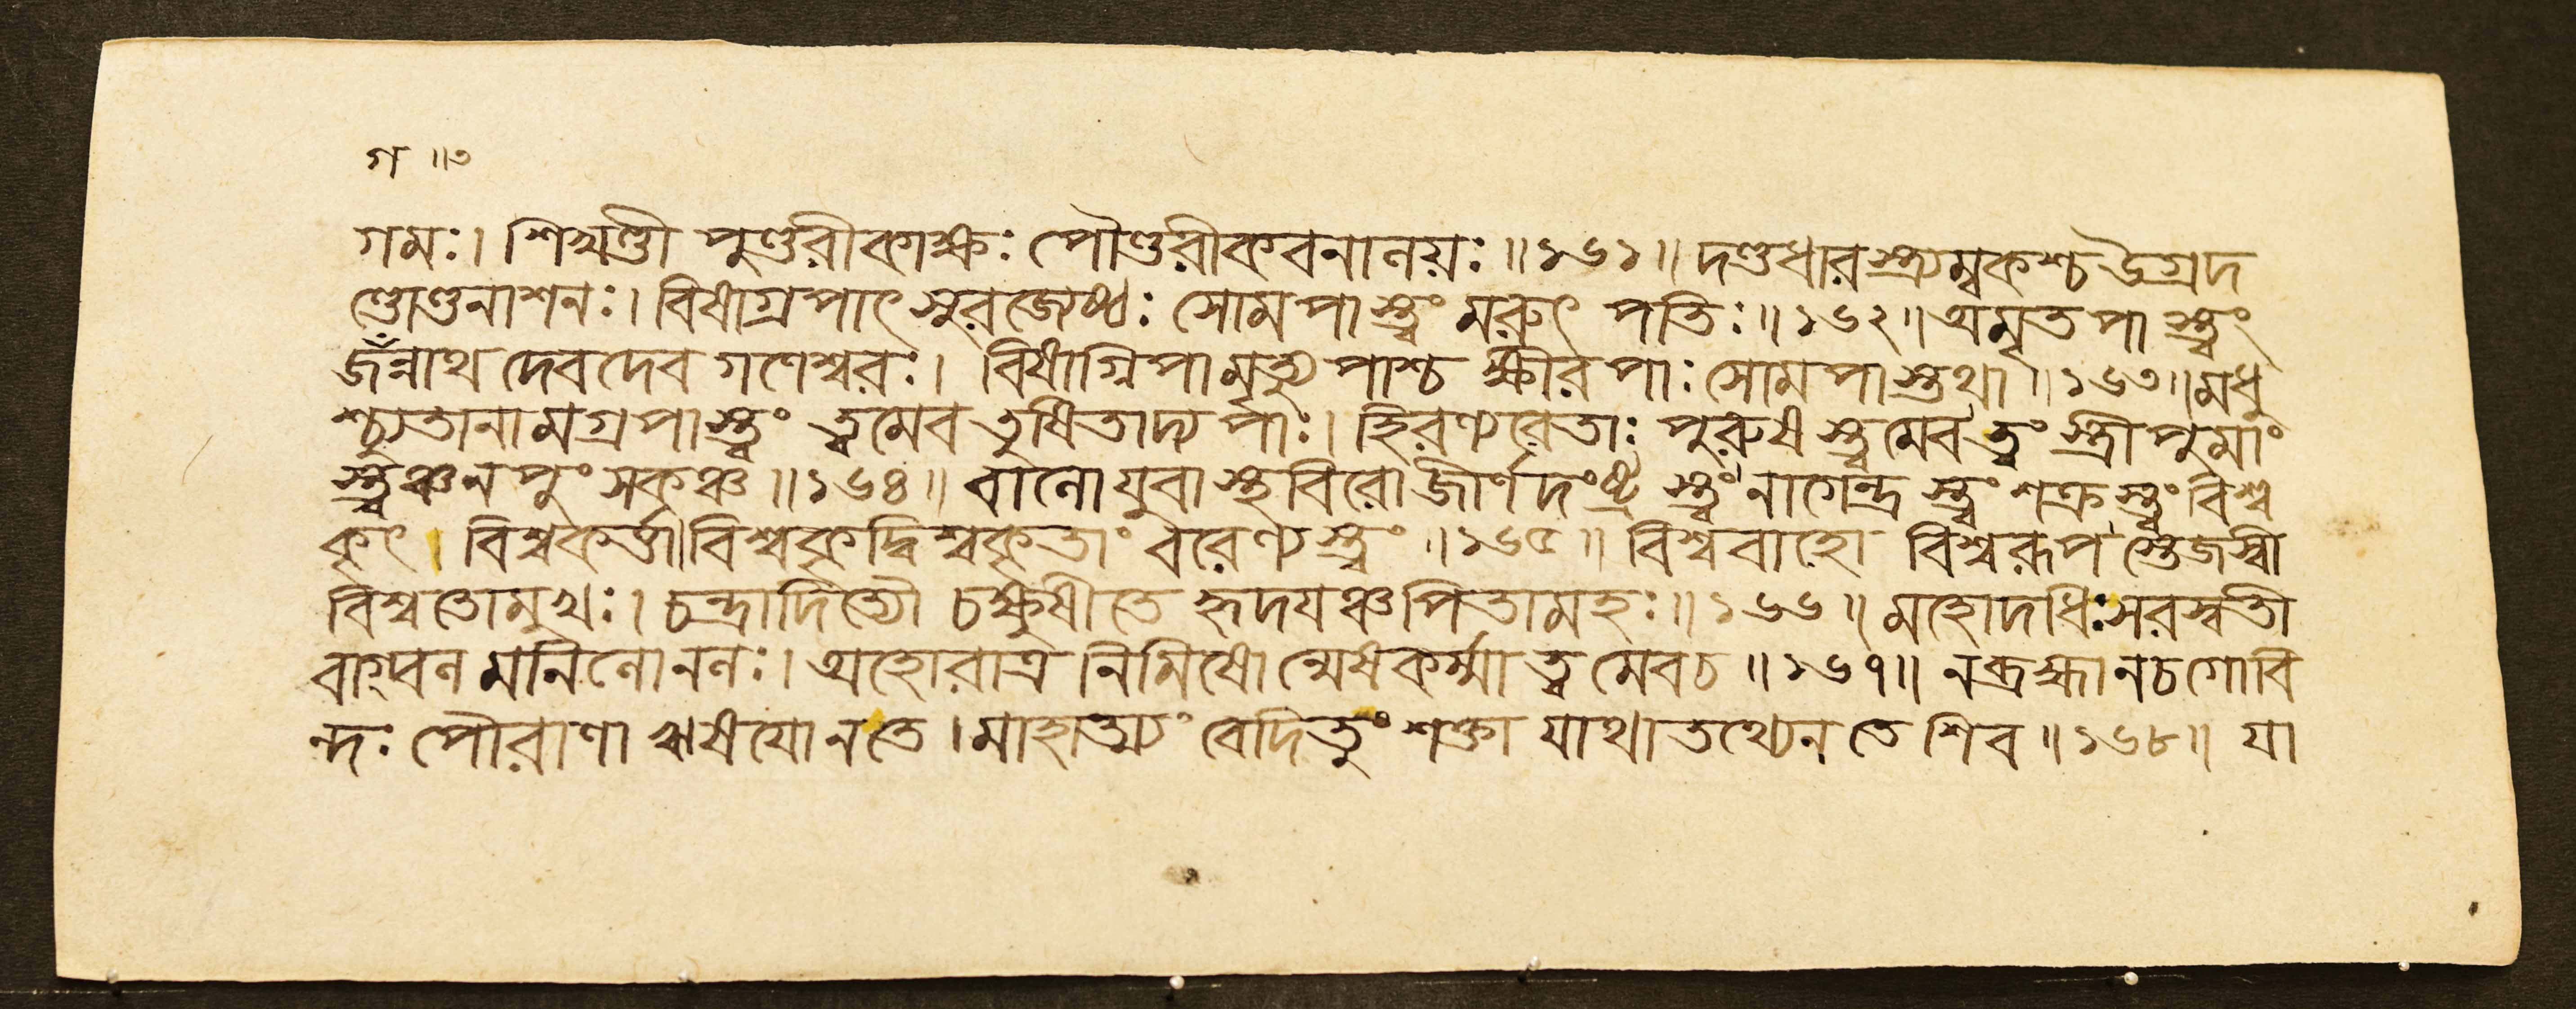 গ ॥৩
গমঃ। শিখণ্ডী পুণ্ডরীকাক্ষঃ পৌণ্ডরীকবনানয়ঃ॥১৬১॥ দণ্ডধারস্ত্র্যম্বকশ্চউগ্রদ
ণ্ডোণ্ডনাশনঃ। বিষাগ্রপাৎ সুরজ্যেষ্ঠঃ সোমপাস্ত্বং মরুৎ পতিঃ॥১৬২॥ অমৃতপাস্ত্বং
জঁন্নাথ দেবদেব গণেশ্বরঃ। বিষাগ্নিপামৃত্যুপাশ্চ ক্ষীরপাঃ সোমপাস্তথা॥১৬৩॥ মধু
শ্চ্যুতানামগ্রপাস্ত্বং ত্বমেব তুষিতাদ্যপাঃ। হিরণ্যরেতাঃ পুরুষস্ত্বমেব ত্বং স্ত্রী পুমাং
স্ত্বঞ্চনপুংসকঞ্চ॥১৬৪॥ বানো যুবাস্থবিরো জীর্ণদংষ্ট্রস্ত্বং নাগেন্দ্রস্ত্বং শক্রস্ত্বং বিশ্ব
কৃৎ। বিশ্বকর্ত্তা।বিশ্বকৃদ্বিশ্বকৃতাং বরেণ্যস্ত্বং॥১৬৫॥ বিশ্ববাহো বিশ্বরূপস্তেজস্বী
বিশ্বতোমুখঃ। চন্দ্রাদিত্যৌ চক্ষুষীতে হৃদযঞ্চপিতামহঃ॥১৬৬॥ মহোদধিঃসরস্বতী
বাগ্বনমনিনোননঃ। অহোরাত্র নিমিষোন্মেষকর্ম্মা ত্বমেবচ॥১৬৭॥ নব্রহ্মানচগোবি
ন্দঃ পৌরাণা ঋষযোনতে। মাহাত্ম্যং বেদিতুং শক্তা যাথাতথ্যেন তে শিব॥১৬৮॥ যা